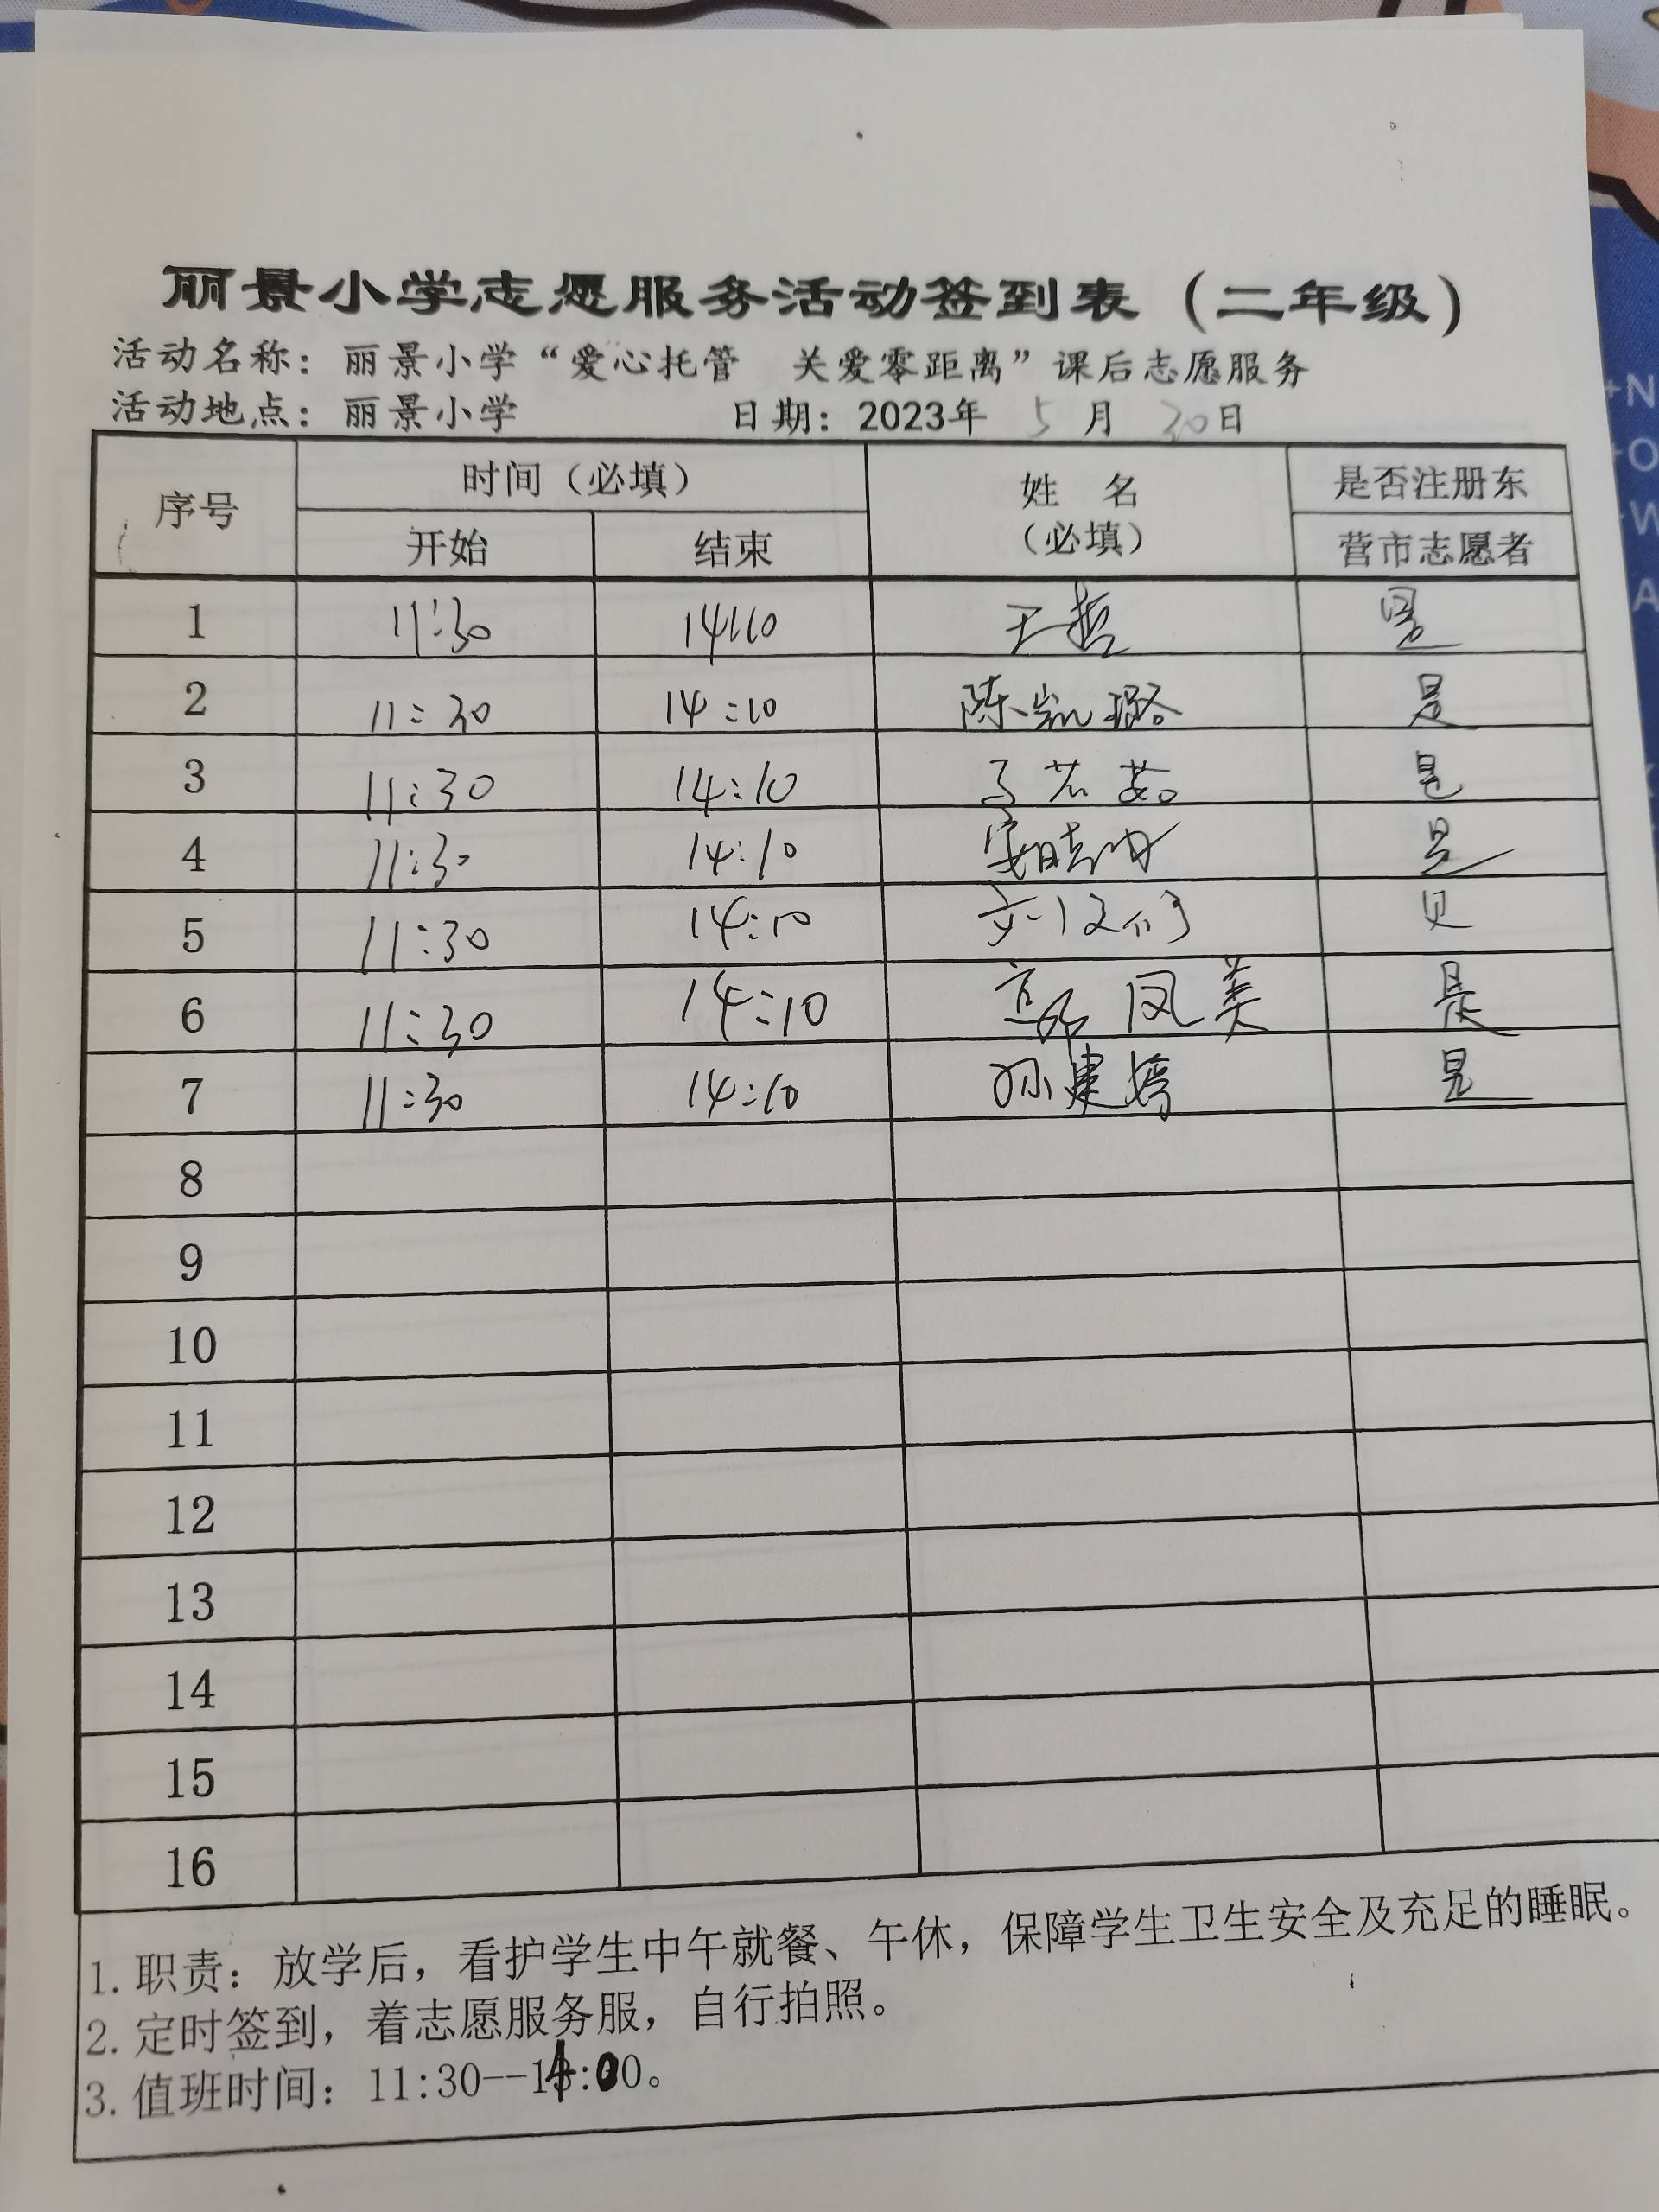 丽景小学志愿服务活动签到表（二年级）
活动名称：丽景小学“爱心托管 关爱零距离”课后志愿服务
活动地点：丽景小学 日期：2023年 5 月 30日
序号 时间（必填） 姓 名（必填） 是否注册东营市志愿者
开始 结束
1 11:30 14:10 王哲 是
2 11:30 14:10 陈凯璐 是
3 11:30 14:10 是
4 11:30 14:10 是
5 11:30 14:10 是
6 11:30 14:10 郭凤美 是
7 11:30 14:10 孙建婷 是
8
9
10
11
12
13
14
15
16
1. 职责：放学后，看护学生中午就餐、午休，保障学生卫生安全及充足的睡眠。
2. 定时签到，着志愿服务服，自行拍照。
3. 值班时间：11:30--14:00。